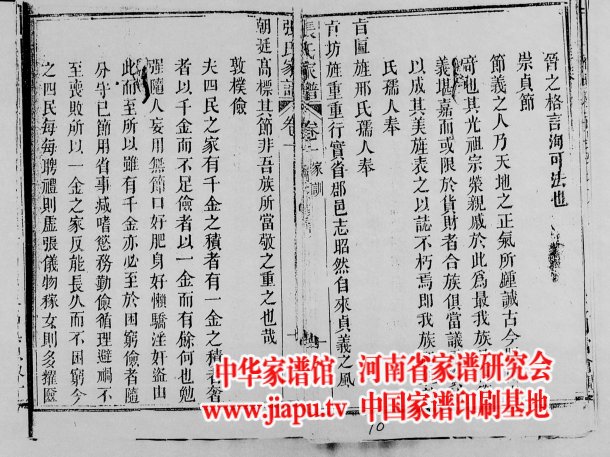 晉之格言洵可法也
崇貞節
節義之人乃天地之正氣所鍾誠古今
奇也其光祖宗榮親戚於此爲最我族
義堪嘉而或限於貨財者合族俱當議
以成其美旌表之以誌不朽焉即我族
氏孺人奉
旨匾旌邢氏孺人奉
旨坊旌重重行實省郡邑志昭然自來貞義之風
張氏家譜 卷一 家訓
張氏家譜 卷一
朝廷高標其節非吾族所當敬之重之也哉
敦樸儉
夫四民之家有千金之積者有一金之積者奢
者以一千金而不足儉者以一金而有餘何也勉
强隨人妄用無節口好肥身好懶驕淫奸盜由
此而至所以雖有千金亦必至於困窮儉者隨
分守己節用省事减嗜慾務勤儉循理避禍不
至喪敗所以一金之家反能長久而不困窮今
之四民每每聘禮則虛張儀物嫁女則多摧
中华家谱馆 河南省家谱研究会
www.jiapu.tv 中国家谱印刷基地
10